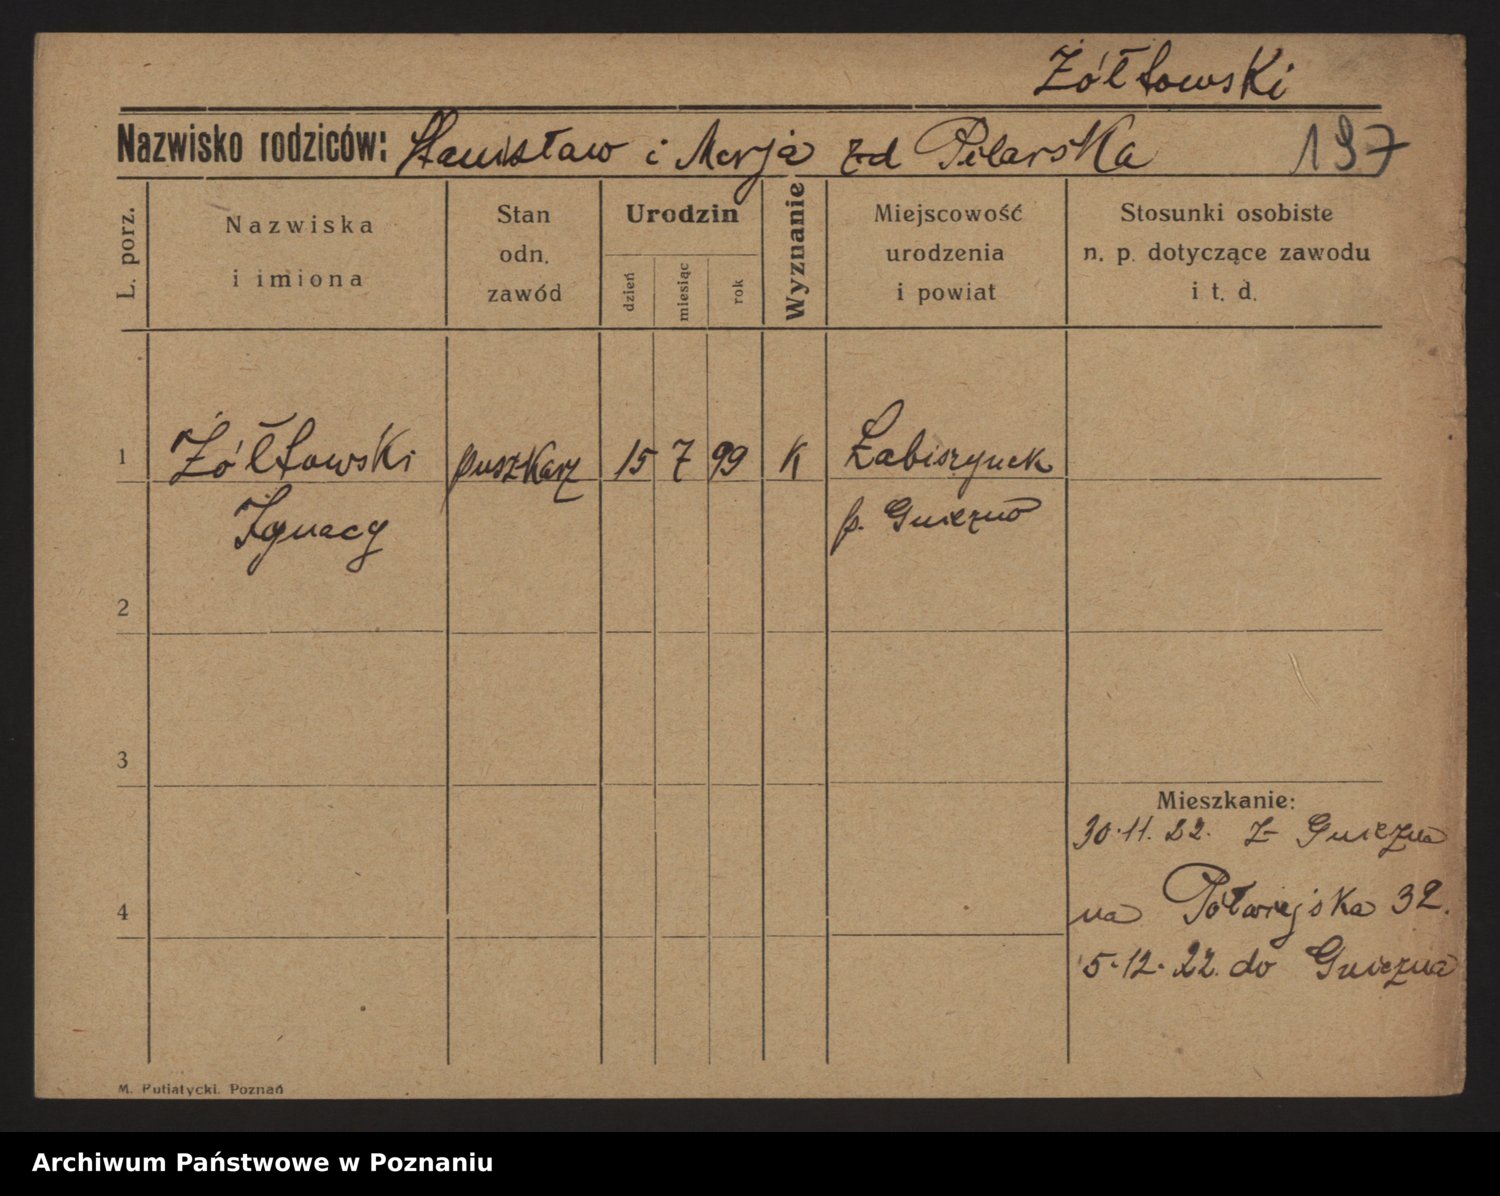 Żółtowski
Nazwisko rodziców: Stanisław i Marja zd Pilarska 197
L. porz.
Nazwiska
i imiona
Stan
odn.
zawód
Urodzin
dzień
miesiąc
rok
Wyznanie
Miejscowość
urodzenia
i powiat
Stosunki osobiste
n. p. dotyczące zawodu
i t. d.
1 Żółtowski puszkarz 15 7 99 K Łabiszynek
Ignacy p. Gniezno
2
3
Mieszkanie:
30.11.22. z Gniezna
4 na Półwiejska 32.
5.12.22. do Gniezna
M. Putiatycki. Poznań
Archiwum Państwowe w Poznaniu